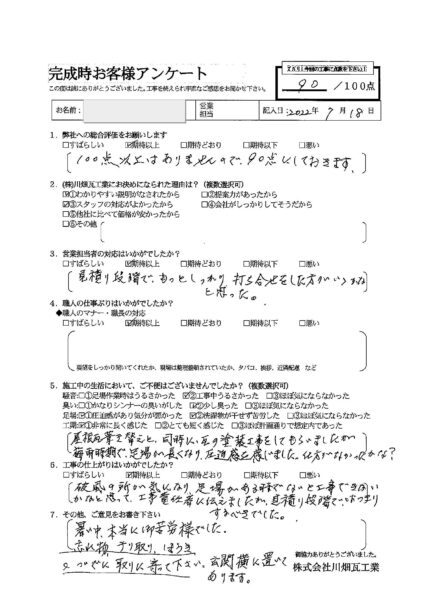 完成時お客様アンケート
この度は誠にありがとうございました。工事を終えられ率直なご感想をお聞かせ下さい。
【ズバリ!今回の工事に点数を下さい!】
90 /100点
お名前:
営業
担当
記入日:2022年 7月 18日
1. 弊社への総合評価をお願いします
□すばらしい ☑期待以上 □期待どおり □期待以下 □悪い
100点以上はありませんので、90点にしておきます。
2. (株)川畑瓦工業にお決めになられた理由は? (複数選択可)
☑①わかりやすい説明がなされたから □②提案力があったから
☑③スタッフの対応がよかったから □④会社がしっかりしてそうだから
□⑤他社に比べて価格が安かったから
□⑥その他
3. 営業担当者の対応はいかがでしたか?
□すばらしい ☑期待以上 □期待どおり □期待以下 □悪い
見積り段階で、もっとしっかり打ち合せをした方がいいかな
と思った。
4. 職人の仕事ぶりはいかがでしたか?
◆職人のマナー・職長の対応
□すばらしい ☑期待以上 □期待どおり □期待以下 □悪い
挨拶をしっかり聞いてくれたか、現場は整理整頓されていたか、タバコ、挨拶、近隣配慮 など
5. 施工中の生活において、ご不便はございませんでしたか? (複数選択可)
騒音:□①足場作業時はうるさかった ☑②工事中うるさかった □③ほぼ気にならなかった
臭い:□①かなりシンナーの臭いがした ☑②少し臭った □③ほぼ気にならなかった
足場:☑①圧迫感があり気分が悪かった ☑②洗濯物が干せず苦労した □③ほぼ気にならなかった
工期:☑①非常に長く感じた □②とても短く感じた □③ほぼ計画通りで想定内であった
屋根瓦葺き替えと、同時に、瓦の塗装工事をしてもらいましたが
梅雨時期で、足場が長くなり、圧迫感を感じました。仕方がなかったかな?
6. 工事の仕上がりはいかがでしたか?
□すばらしい ☑期待以上 □期待どおり □期待以下 □悪い
破風の所が気になり、足場がある時でないと工事できない
かなと思って、工事責任者に伝えましたが、見積り段階でしっかり
するべきでした。
7. その他、ご意見をお書き下さい
暑い中、本当に御苦労様でした。
忘れ物 チリ取り、ほうき
ついでに取りに寄って下さい。玄関横に置いて
あります。
御協力ありがとうございました。
株式会社川畑瓦工業